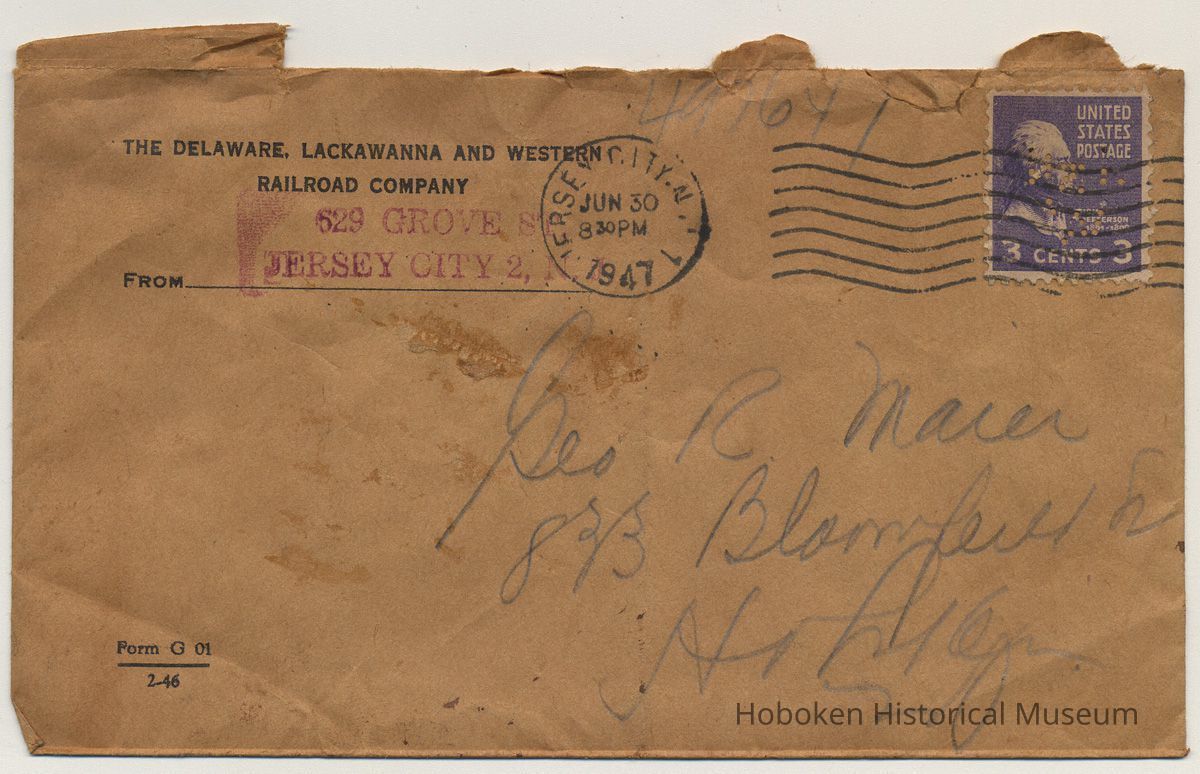 THE DELAWARE, LACKAWANNA AND WESTERN
RAILROAD COMPANY
629 GROVE ST
JERSEY CITY 2, N.
FROM
JERSEY CITY. N. J. 1
JUN 30
8 30 PM
1947
UNITED
STATES
POSTAGE
JEFFERSON
1801-1809
3 CENTS 3
Geo R. Maier
833 Bloomfield St
Hoboken
Form G 01
2-46
Hoboken Historical Museum